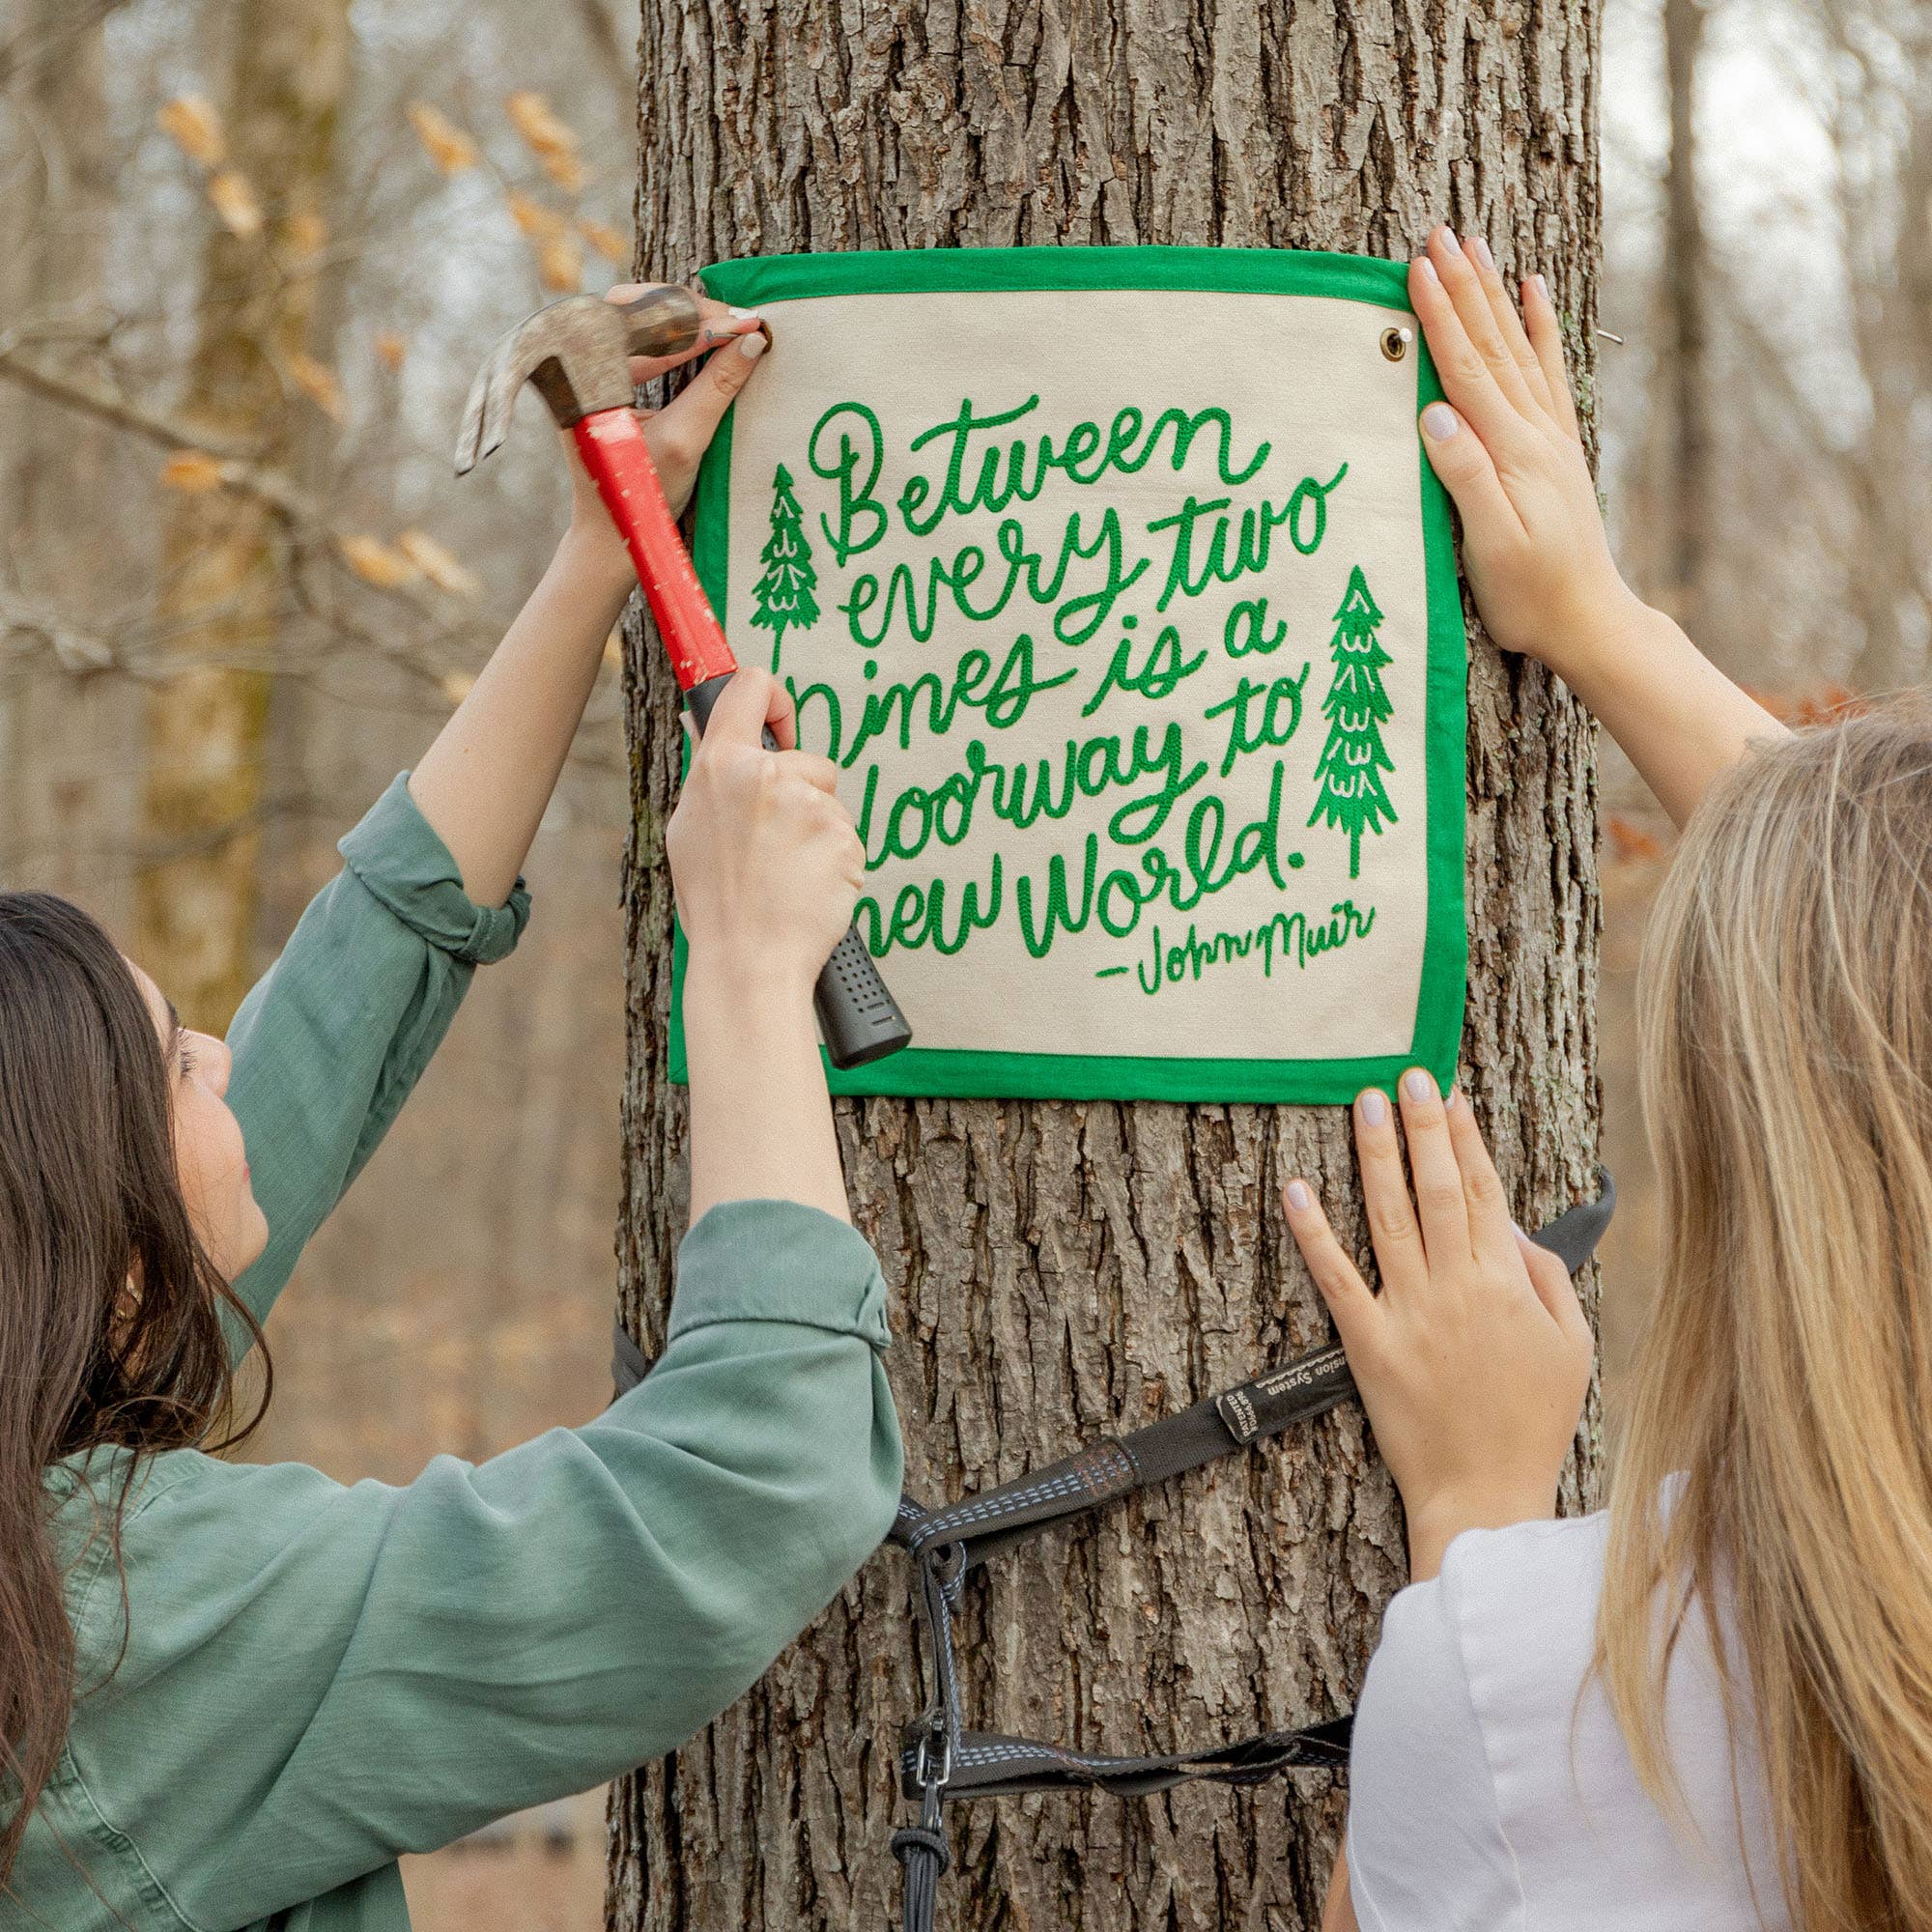 Between
every two
pines is a
doorway to
new World.
-John Muir
nsion System
PATENTED